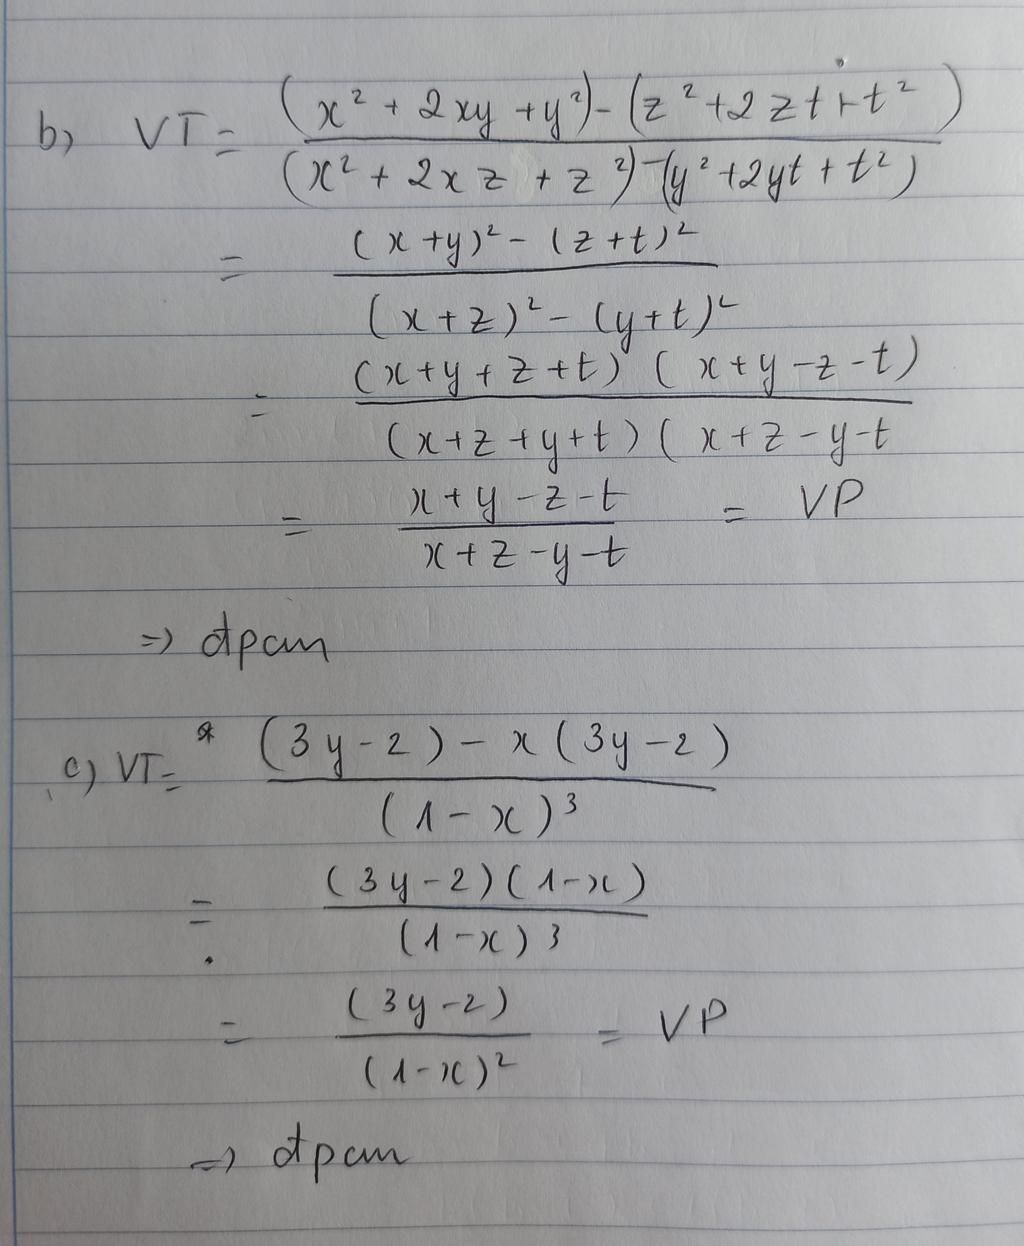 b) VT = ((x² + 2xy + y²) - (z² + 2zt + t²)) / ((x² + 2xz + z²) - (y² + 2yt + t²))
= ((x+y)² - (z+t)²) / ((x+z)² - (y+t)²)
= ((x+y+z+t) (x+y-z-t)) / ((x+z+y+t) (x+z-y-t)
= (x+y-z-t) / (x+z-y-t) = VP
=> đpcm
c) VT = ((3y-2) - x(3y-2)) / (1-x)³
= ((3y-2)(1-x)) / (1-x)³
= (3y-2) / (1-x)² = VP
=> đpcm